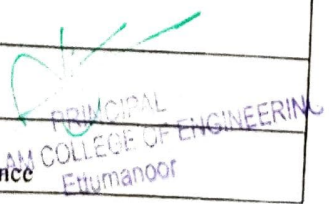 PRINCIPAL
AM COLLEGE OF ENGINEERING
nce
Ettumanoor